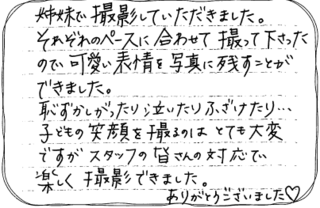 姉妹で撮影していただきました。
それぞれのペースに合わせて撮って下さった
ので可愛い表情を写真に残すことが
できました。
恥ずかしがったり泣いたりふざけたり…
子どもの笑顔を撮るのはとても大変
ですがスタッフの皆さんの対応でい
楽しく撮影できました。
ありがとうございました♡